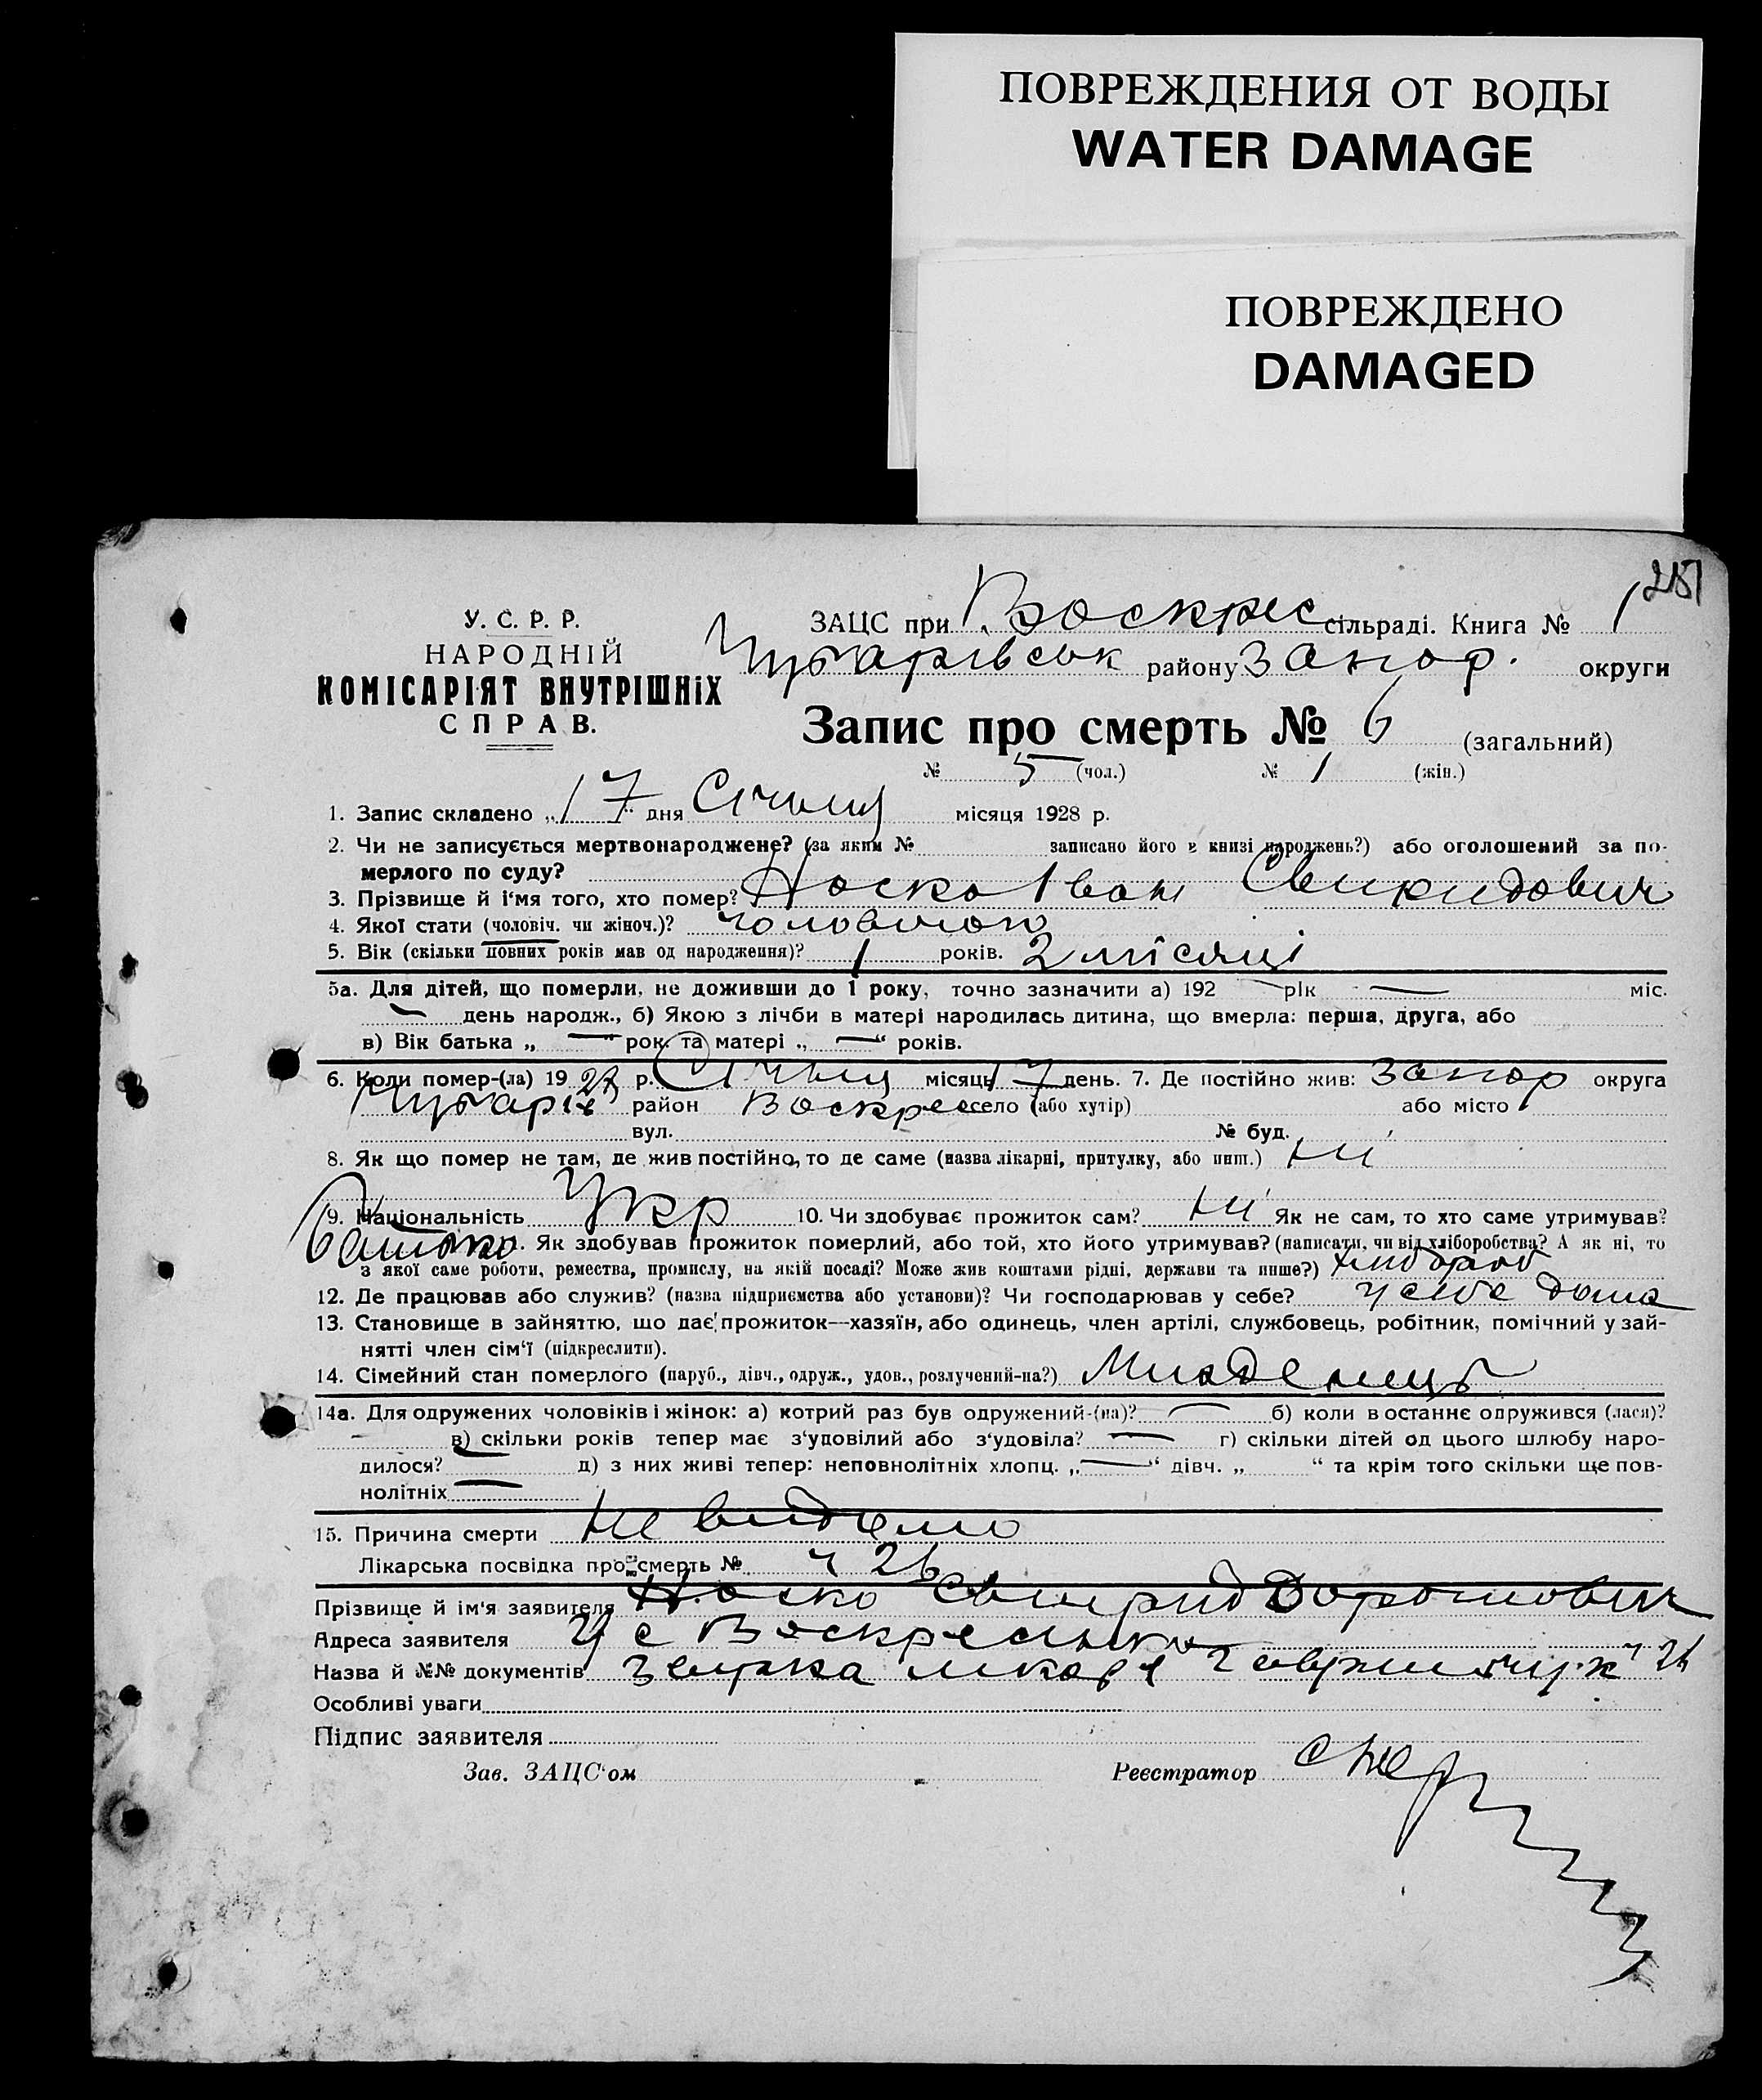 ПОВРЕЖДЕНИЯ ОТ ВОДЫ
WATER DAMAGE
ПОВРЕЖДЕНО
DAMAGED
У. С. Р. Р.
НАРОДНІЙ
КОМІСАРІЯТ ВНУТРІШНІХ
СПРАВ.
ЗАЦС при Воскрес сільраді. Книга № 1
Чубарівськ району Запор. округи
Запис про смерть № 6 (загальний)
№ 5 (чол.) № 1 (жін.)
1. Запис складено „17“ дня Січня місяця 1928 р.
2. Чи не записується мертвонароджене? (за яким № записано його в книзі народжень?) або оголошений за по-
мерлого по суду?
3. Прізвище й і'мя того, хто помер? Носко Іван Свиридович
4. Якої стати (чоловіч. чи жіноч.)? чоловічого
5. Вік (скільки повних років мав од народження)? 1 років. 2 місяці
5а. Для дітей, що померли, не доживши до 1 року, точно зазначити а) 192 — рік — міс.
— день народж., б) Якою з лічби в матері народилась дитина, що вмерла: перша, друга, або
в) Вік батька „ — “ рок. та матері „ — “ років.
6. Коли помер-(ла) 1928 р. Січня місяць 17 день. 7. Де постійно жив: Запор округа
Чубарів район Воскресе село (або хутір) або місто
вул. № буд.
8. Як що помер не там, де жив постійно, то де саме (назва лікарні, притулку, або инш.) ні
9. Національність Укр 10. Чи здобуває прожиток сам? ні Як не сам, то хто саме утримував?
батько. Як здобував прожиток померлий, або той, хто його утримував? (написати, чи від хліборобства? А як ні, то
з якої саме роботи, ремества, промислу, на якій посаді? Може жив коштами рідні, держави та инше?) хлібороб
12. Де працював або служив? (назва підприємства або установи)? Чи господарював у себе? у себе дома
13. Становище в зайняттю, що дає прожиток—хазяїн, або одинець, член артілі, службовець, робітник, помічний у зай-
нятті член сім'ї (підкреслити).
14. Сімейний стан померлого (паруб., дівч., одруж., удов., розлучений-на?) Младенець
14а. Для одружених чоловіків і жінок: а) котрий раз був одружений-(на)? — б) коли в останнє одружився (лася)?
— в) скільки років тепер має з'удовілий або з'удовіла? — г) скільки дітей од цього шлюбу наро-
дилося? — д) з них живі тепер: неповнолітніх хлопц. „ — “ дівч. „ “ та крім того скільки ще пов-
нолітніх —
15. Причина смерти Не видомо
Лікарська посвідка про смерть № ч 26
Прізвище й ім'я заявителя Носко Свирид
Адреса заявителя с Воскресенка
Назва й №№ документів лікаря
Особливі уваги
Підпис заявителя
Зав. ЗАЦС'ом Реєстратор